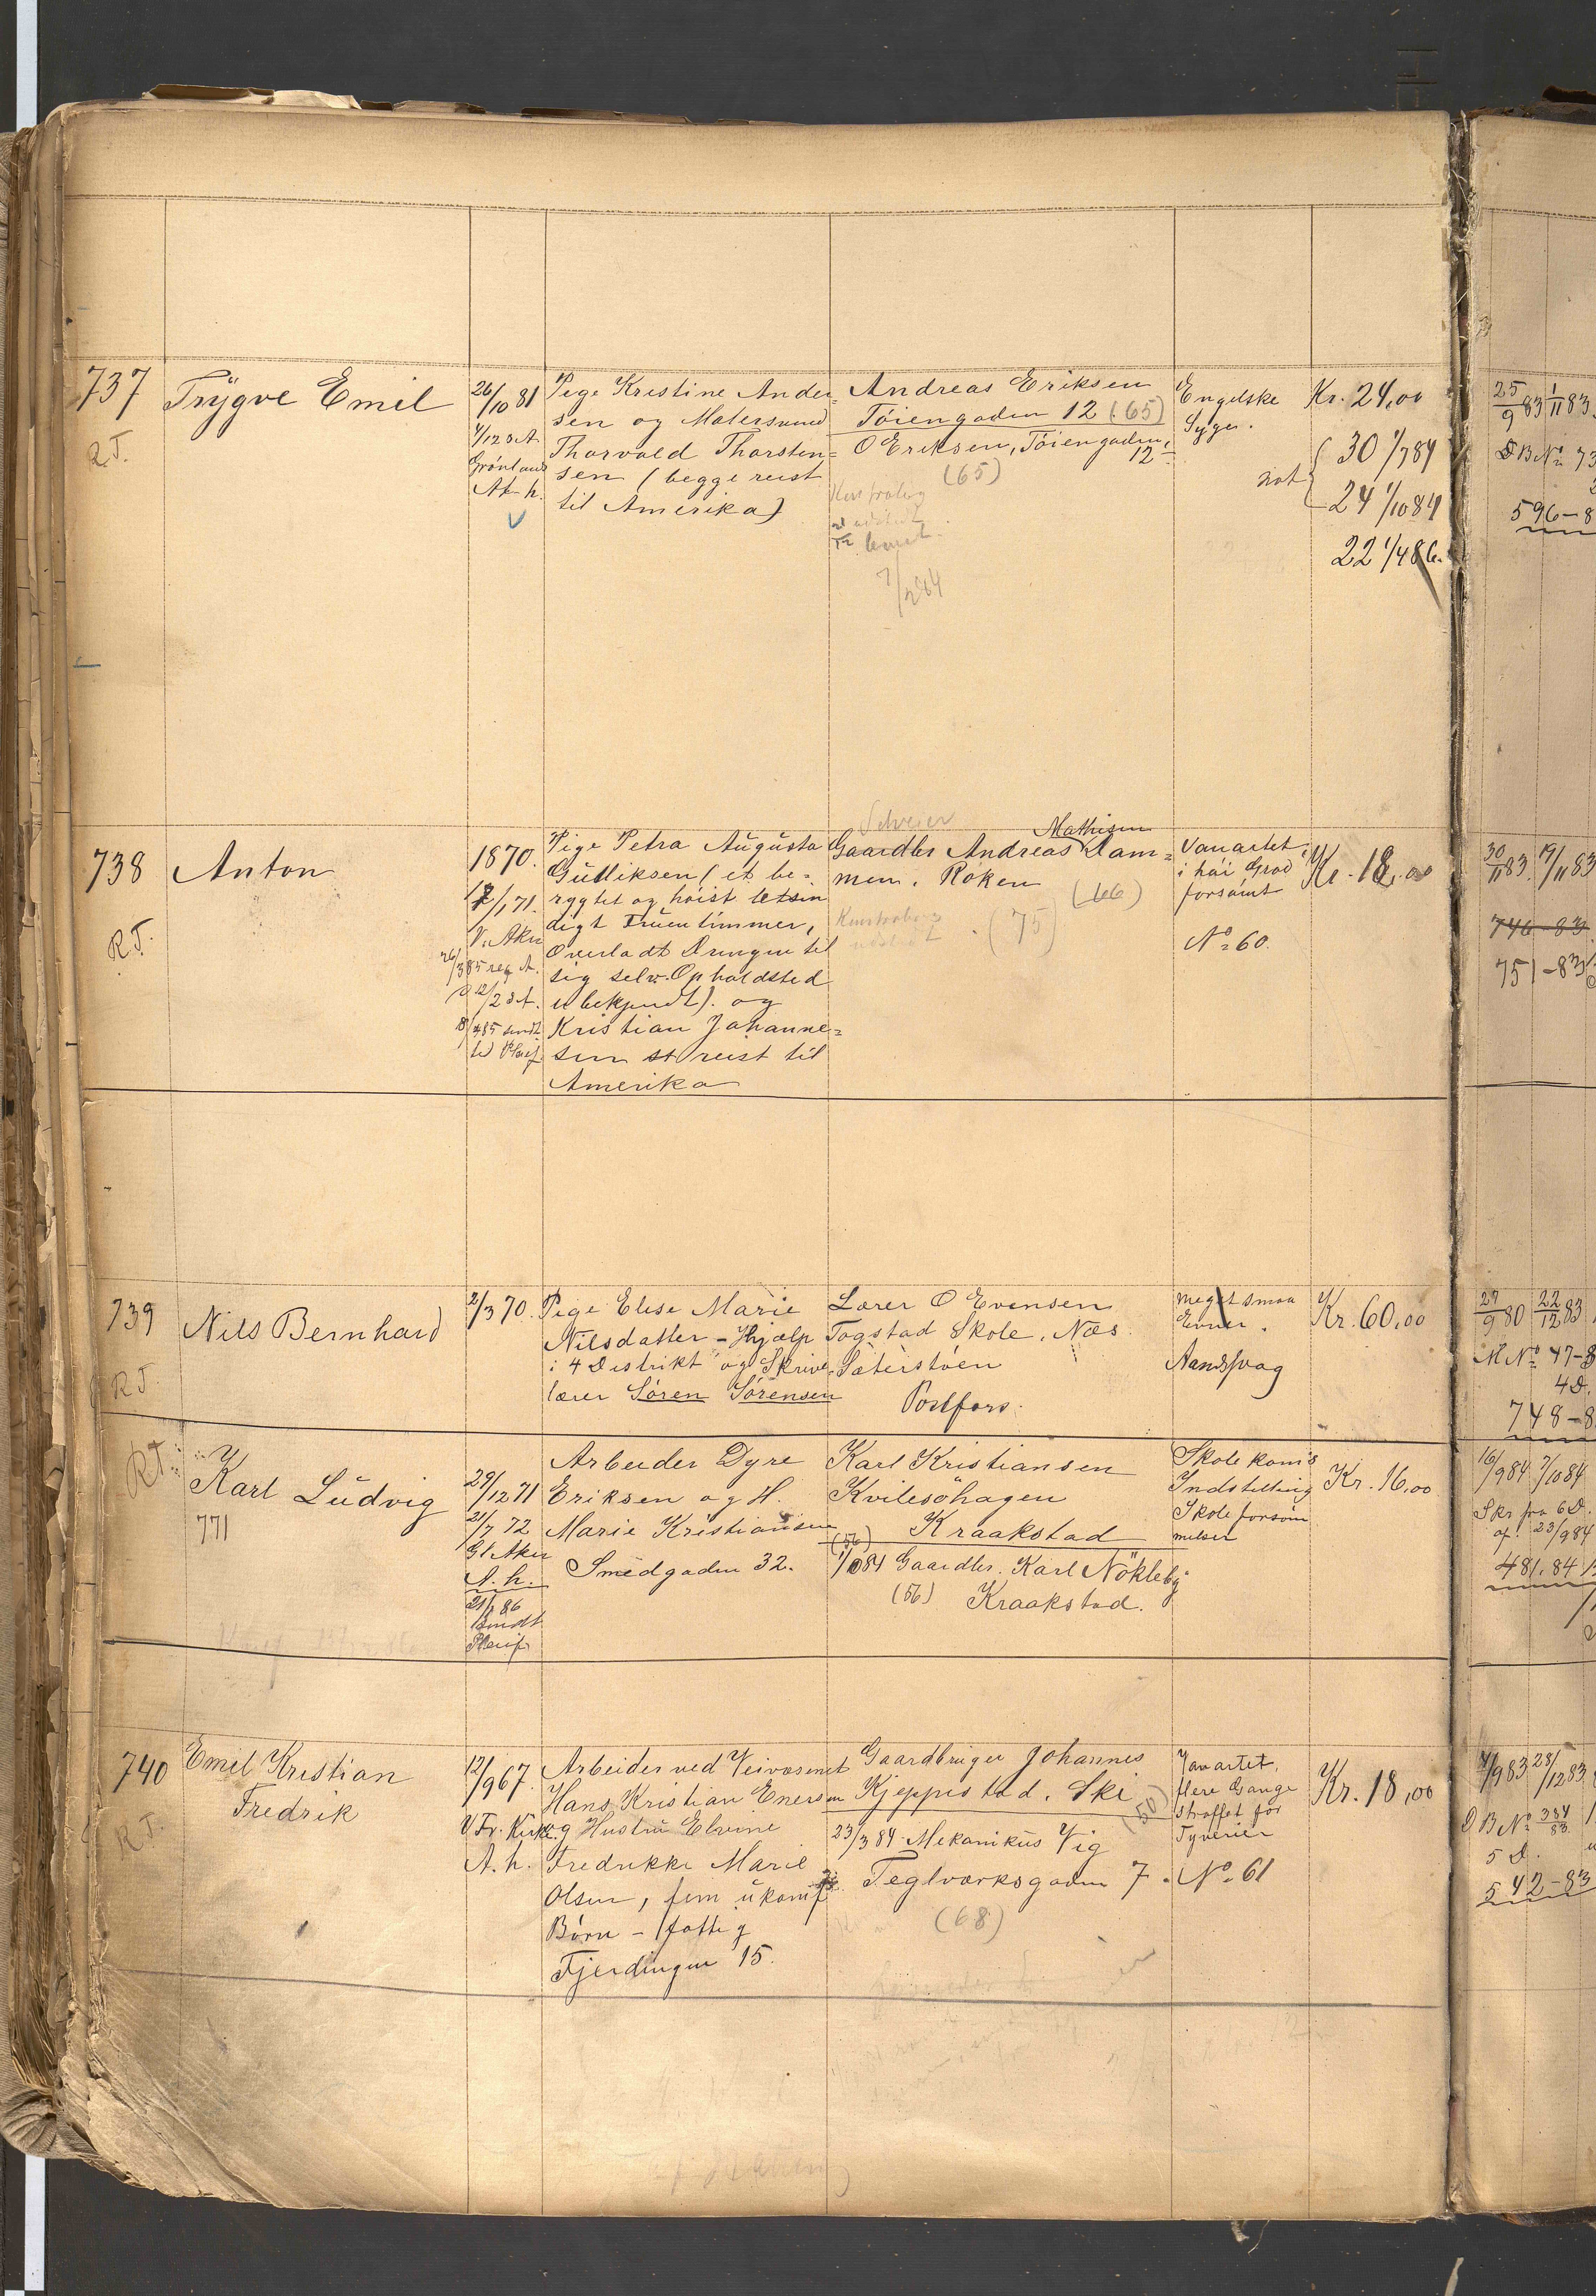 737
R.T.
Trygve Emil
26/10 81
Grønlands
A. h.
Pige Kristine Ander-
sen og Malersvend
Thorvald Thorsten=
sen (begge reist
til Amerika)
Andreas Eriksen
Töiengaden 12 (65)
O Eriksen, Töiengaden,
12
(65)
Engelske
Syge.
Kr. 24,00
30 1/7 84
24 1/10 84
22 1/4 86.
25/9 83 1/11 83
596-8
738
R.T.
Anton
1870.
V. Aker
Pige Petra Augusta
Gulliksen (et be-
rygtet og höist letsin
digt Fruentimmer,
Overladt Drengen til
sig selv. Opholdsted
ubekjendt). og
Kristian Johanne=
sen reist til
Amerika
Selveier
Mathisen
Gaardbr Andreas Dam=
men. Röken
(66)
(75)
Vanartet,
i höi Grad
forsömt
No 60.
Kr. 18,00
30/11 83. 19/11 83
746-83
751-83
739
R T
Nils Bernhard
2/3 70.
Pige Elise Marie
Nilsdatter - Hjælp
i 4 Distrikt og Skrive
lærer Sören Sörensen
Lærer O Evensen
Togstad Skole. Næs
Sæterstöen
Postfors.
meget smaa
Evner.
Aandssvag
Kr. 60,00
27/9 80 22/12 83
M No 47-8
4 D.
748-8
R.T.
Karl Ludvig
771
29/12 71
21/7 72
Gl. Aker
A. h.
Sendt
Arbeider Dyre
Eriksen og H.
Marie Kristiansen
Smedgaden 32.
Karl Kristiansen
Kvilesöhagen
Kraakstad
(56)
Gaardbr. Karl Nökleby
(56) Kraakstad.
Skolekoms
Indstilling
Skoleforsöm
melser
Kr. 16,00
16/9 84 7/10 84
Skr fra 6 D.
af 23/9 84
481.84
740
R T.
Emil Kristian
Fredrik
12/9 67.
V Fr. Kirke.
A. h.
Arbeider ved Veivæsenet
Hans Kristian Enersen
og Hustru Elvine
Fredrikke Marie
Olsen, fem ukonf
Börn - fattig
Fjerdingen 15.
Gaardbruger Johannes
Kjeppestad. Ski
(50)
23/3 84 Mekanikus Vig
Teglværksgaden 7.
(68)
Vanartet,
flere Gange
straffet for
Tyverier
No 61
Kr. 18,00
4/9 83 28/12 83
D B No 384/83
5 D.
542-83